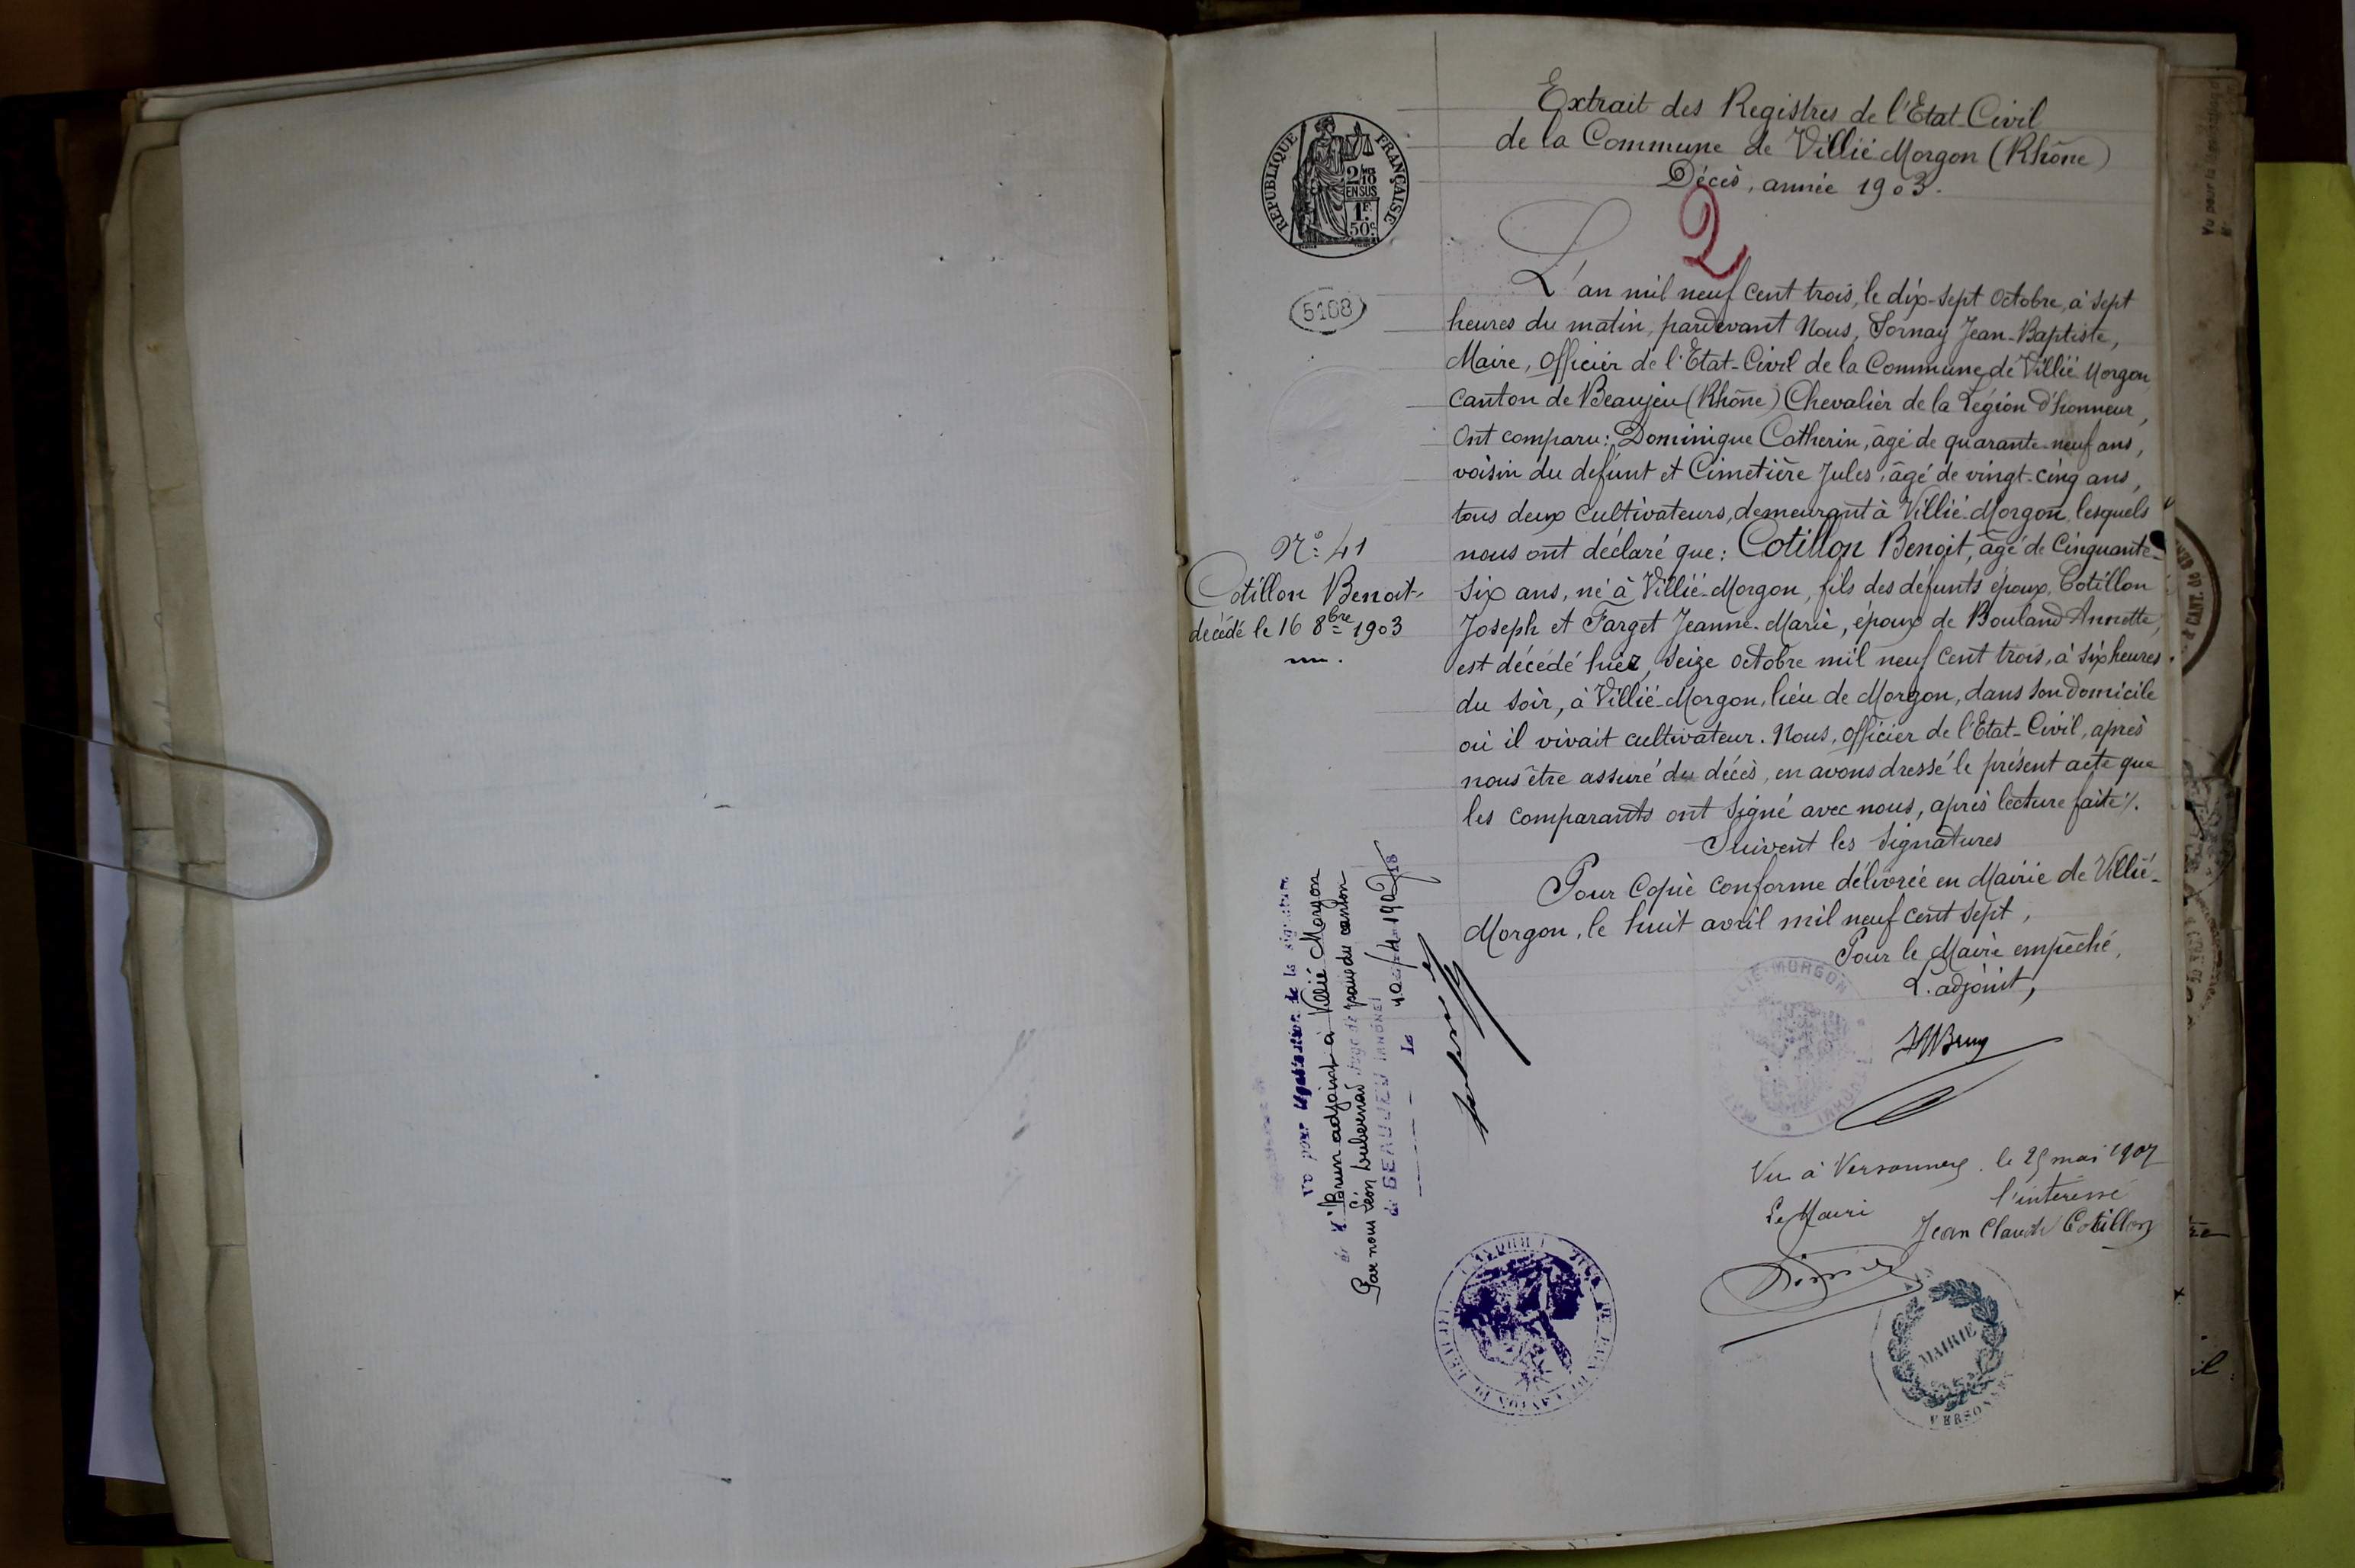 Extrait des Registres de l'Etat-Civil
de la Commune de Villié Morgon (Rhône)
Décès, année 1903.
2
REPUBLIQUE FRANÇAISE
2/10
EN SUS
1F
50c
5108
L'an mil neuf cent trois, le dix-sept octobre, à sept
heures du matin, pardevant Nous, Sornay Jean-Baptiste,
Maire, officier de l'Etat-Civil de la Commune de Villié-Morgon
canton de Beaujeu (Rhône) Chevalier de la Légion d'honneur,
Ont comparu: Dominique Catherin, âgé de quarante-neuf ans,
voisin du defunt et Cimetière Jules, âgé de vingt-cinq ans,
tous deux cultivateurs, demeurant à Villié-Morgon, lesquels
nous ont déclaré que: Cotillon Benoit, âgé de Cinquante-
Six ans, né à Villié-Morgon, fils des défunts époux, Cotillon
Joseph et Farget Jeanne-Marie, époux de Bouland Annette,
est décédé hier, seize octobre mil neuf cent trois, à six heures
du soir, à Villié-Morgon, lieu de Morgon, dans son domicile
où il vivait cultivateur. Nous, officier de l'Etat-Civil, après
nous être assuré du décès, en avons dressé le présent acte que
les comparants ont signé avec nous, après lecture faite ./.
Suivent les signatures
Pour Copie conforme délivrée en Mairie de Villié-
Morgon, le huit avril mil neuf cent sept,
Pour le Maire empêché,
L'adjoint,
N° 41
Cotillon Benoit
décédé le 16 8bre 1903
Vu pour légalisation de la signature
de M. Brun adjoint à Villié Morgon
Par nous Léon juge de paix du canton
de BEAUJEU (RHÔNE)
Le
Vu à Versonnex, le 25 mai 1907
Le Maire
l'interessé
Jean Claude Cotillon
MAIRIE
VERSONNEX